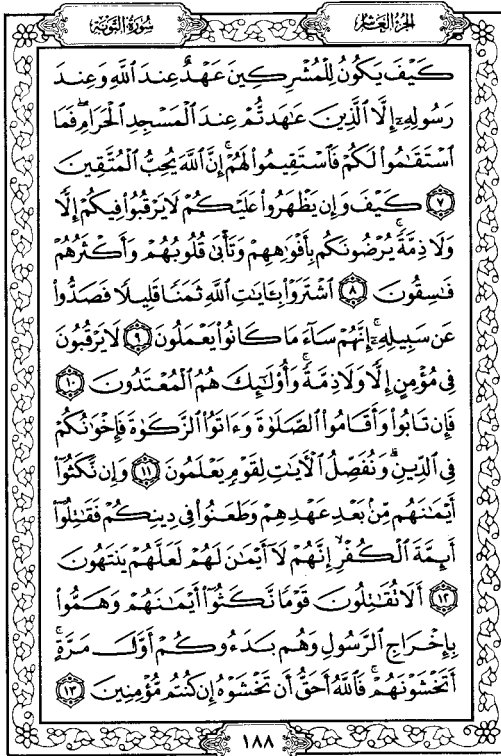 سُورَةُ التَّوْبَةِ
الجُزْءُ العَاشِرُ
كَيْفَ يَكُونُ لِلْمُشْرِكِينَ عَهْدٌ عِندَ ٱللَّهِ وَعِندَ
رَسُولِهِۦٓ إِلَّا ٱلَّذِينَ عَٰهَدتُّمْ عِندَ ٱلْمَسْجِدِ ٱلْحَرَامِ ۖ فَمَا
ٱسْتَقَٰمُوا۟ لَكُمْ فَٱسْتَقِيمُوا۟ لَهُمْ ۚ إِنَّ ٱللَّهَ يُحِبُّ ٱلْمُتَّقِينَ
۝٧ كَيْفَ وَإِن يَظْهَرُوا۟ عَلَيْكُمْ لَا يَرْقُبُوا۟ فِيكُمْ إِلًّا
وَلَا ذِمَّةً ۚ يُرْضُونَكُم بِأَفْوَٰهِهِمْ وَتَأْبَىٰ قُلُوبُهُمْ وَأَكْثَرُهُمْ
فَٰسِقُونَ ۝٨ ٱشْتَرَوْا۟ بِـَٔايَٰتِ ٱللَّهِ ثَمَنًا قَلِيلًا فَصَدُّوا۟
عَن سَبِيلِهِۦٓ ۚ إِنَّهُمْ سَآءَ مَا كَانُوا۟ يَعْمَلُونَ ۝٩ لَا يَرْقُبُونَ
فِى مُؤْمِنٍ إِلًّا وَلَا ذِمَّةً ۚ وَأُو۟لَٰٓئِكَ هُمُ ٱلْمُعْتَدُونَ ۝١٠
فَإِن تَابُوا۟ وَأَقَامُوا۟ ٱلصَّلَوٰةَ وَءَاتَوُا۟ ٱلزَّكَوٰةَ فَإِخْوَٰنُكُمْ
فِى ٱلدِّينِ ۗ وَنُفَصِّلُ ٱلْـَٔايَٰتِ لِقَوْمٍ يَعْلَمُونَ ۝١١ وَإِن نَّكَثُوٓا۟
أَيْمَٰنَهُم مِّنۢ بَعْدِ عَهْدِهِمْ وَطَعَنُوا۟ فِى دِينِكُمْ فَقَٰتِلُوٓا۟
أَئِمَّةَ ٱلْكُفْرِ ۙ إِنَّهُمْ لَآ أَيْمَٰنَ لَهُمْ لَعَلَّهُمْ يَنتَهُونَ
۝١٢ أَلَا تُقَٰتِلُونَ قَوْمًا نَّكَثُوٓا۟ أَيْمَٰنَهُمْ وَهَمُّوا۟
بِإِخْرَاجِ ٱلرَّسُولِ وَهُم بَدَءُوكُمْ أَوَّلَ مَرَّةٍ ۚ
أَتَخْشَوْنَهُمْ ۚ فَٱللَّهُ أَحَقُّ أَن تَخْشَوْهُ إِن كُنتُم مُّؤْمِنِينَ ۝١٣
١٨٨